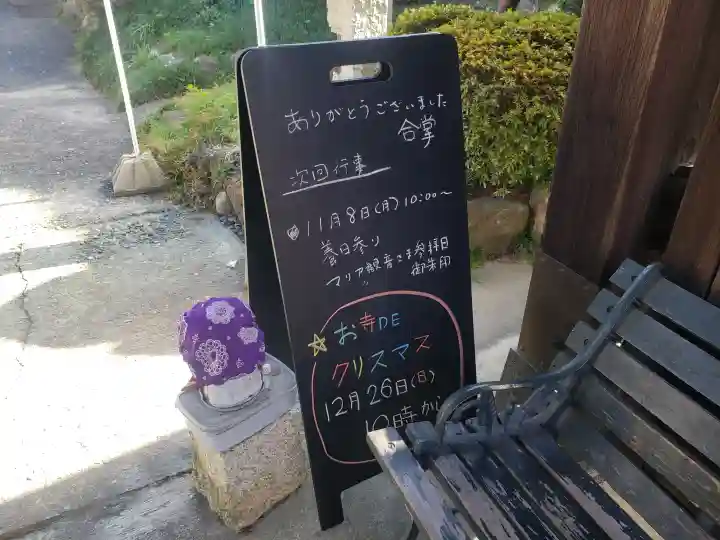 ありがとうございました
合掌
次回行事
11月8日(月)10:00〜
養日参り
マリア観音さま参拝日
御朱印
☆お寺DE
クリスマス
12月26日(日)
10時から